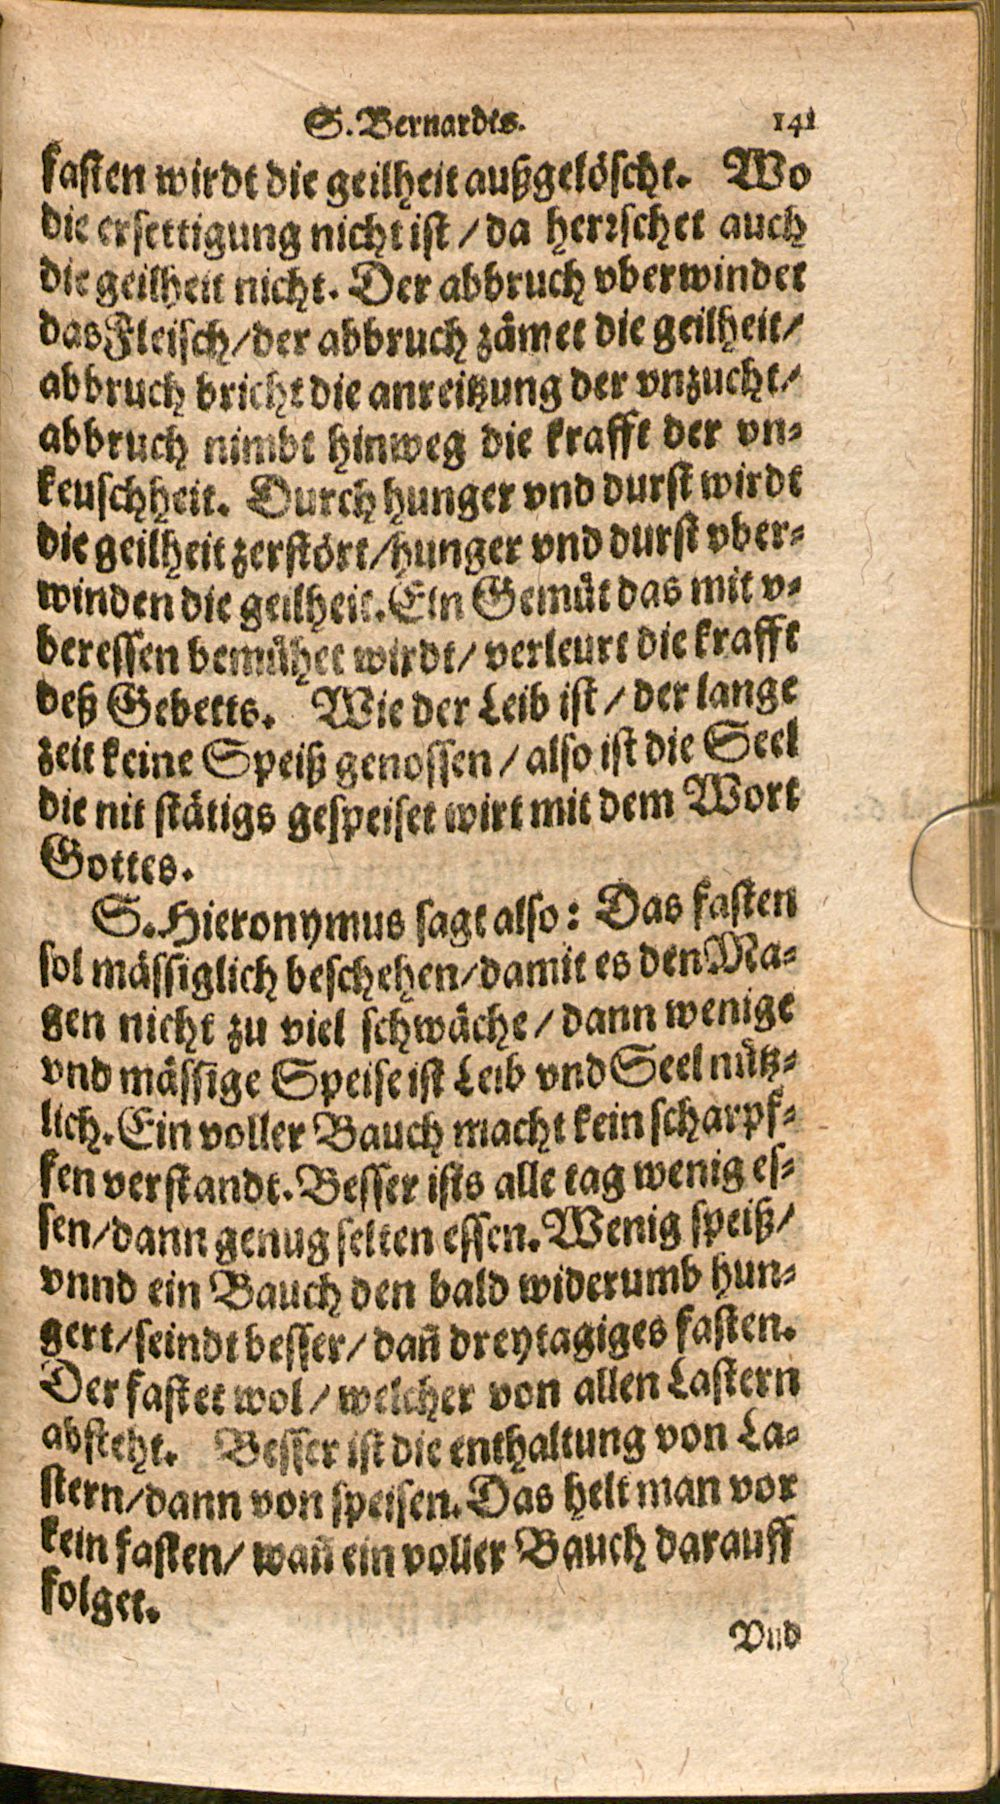 S. Bernardts. 141
fasten wirdt die geilheit außgelöscht. Wo
die ersettigung nicht ist / da herrschet auch
die geilheit nicht. Der abbruch vberwindet
das Fleisch / der abbruch zämet die geilheit /
abbruch bricht die anreitzung der vnzucht /
abbruch nimbt hinweg die krafft der vn-
keuschheit. Durch hunger vnd durst wirdt
die geilheit zerstört / hunger vnd durst vber-
winden die geilheit. Ein Gemüt das mit v-
beressen bemühet wirdt / verleurt die krafft
deß Gebetts. Wie der Leib ist / der lange
zeit keine Speiß genossen / also ist die Seel
die nit stätigs gespeiset wirt mit dem Wort
Gottes.
S. Hieronymus sagt also: Das fasten
sol mässiglich beschehen / damit es den Ma-
gen nicht zu viel schwäche / dann wenige
vnd mässige Speise ist Leib vnd Seel nütz-
lich. Ein voller Bauch macht kein scharpf-
fen verstandt. Besser ists alle tag wenig es-
sen / dann genug selten essen. Wenig speiß /
vnnd ein Bauch den bald widerumb hun-
gert / seindt besser / dañ dreytagiges fasten.
Der fastet wol / welcher von allen Lastern
absteht. Besser ist die enthaltung von La-
stern / dann von speisen. Das helt man vor
kein fasten / wañ ein voller Bauch darauff
folget.
Vnd